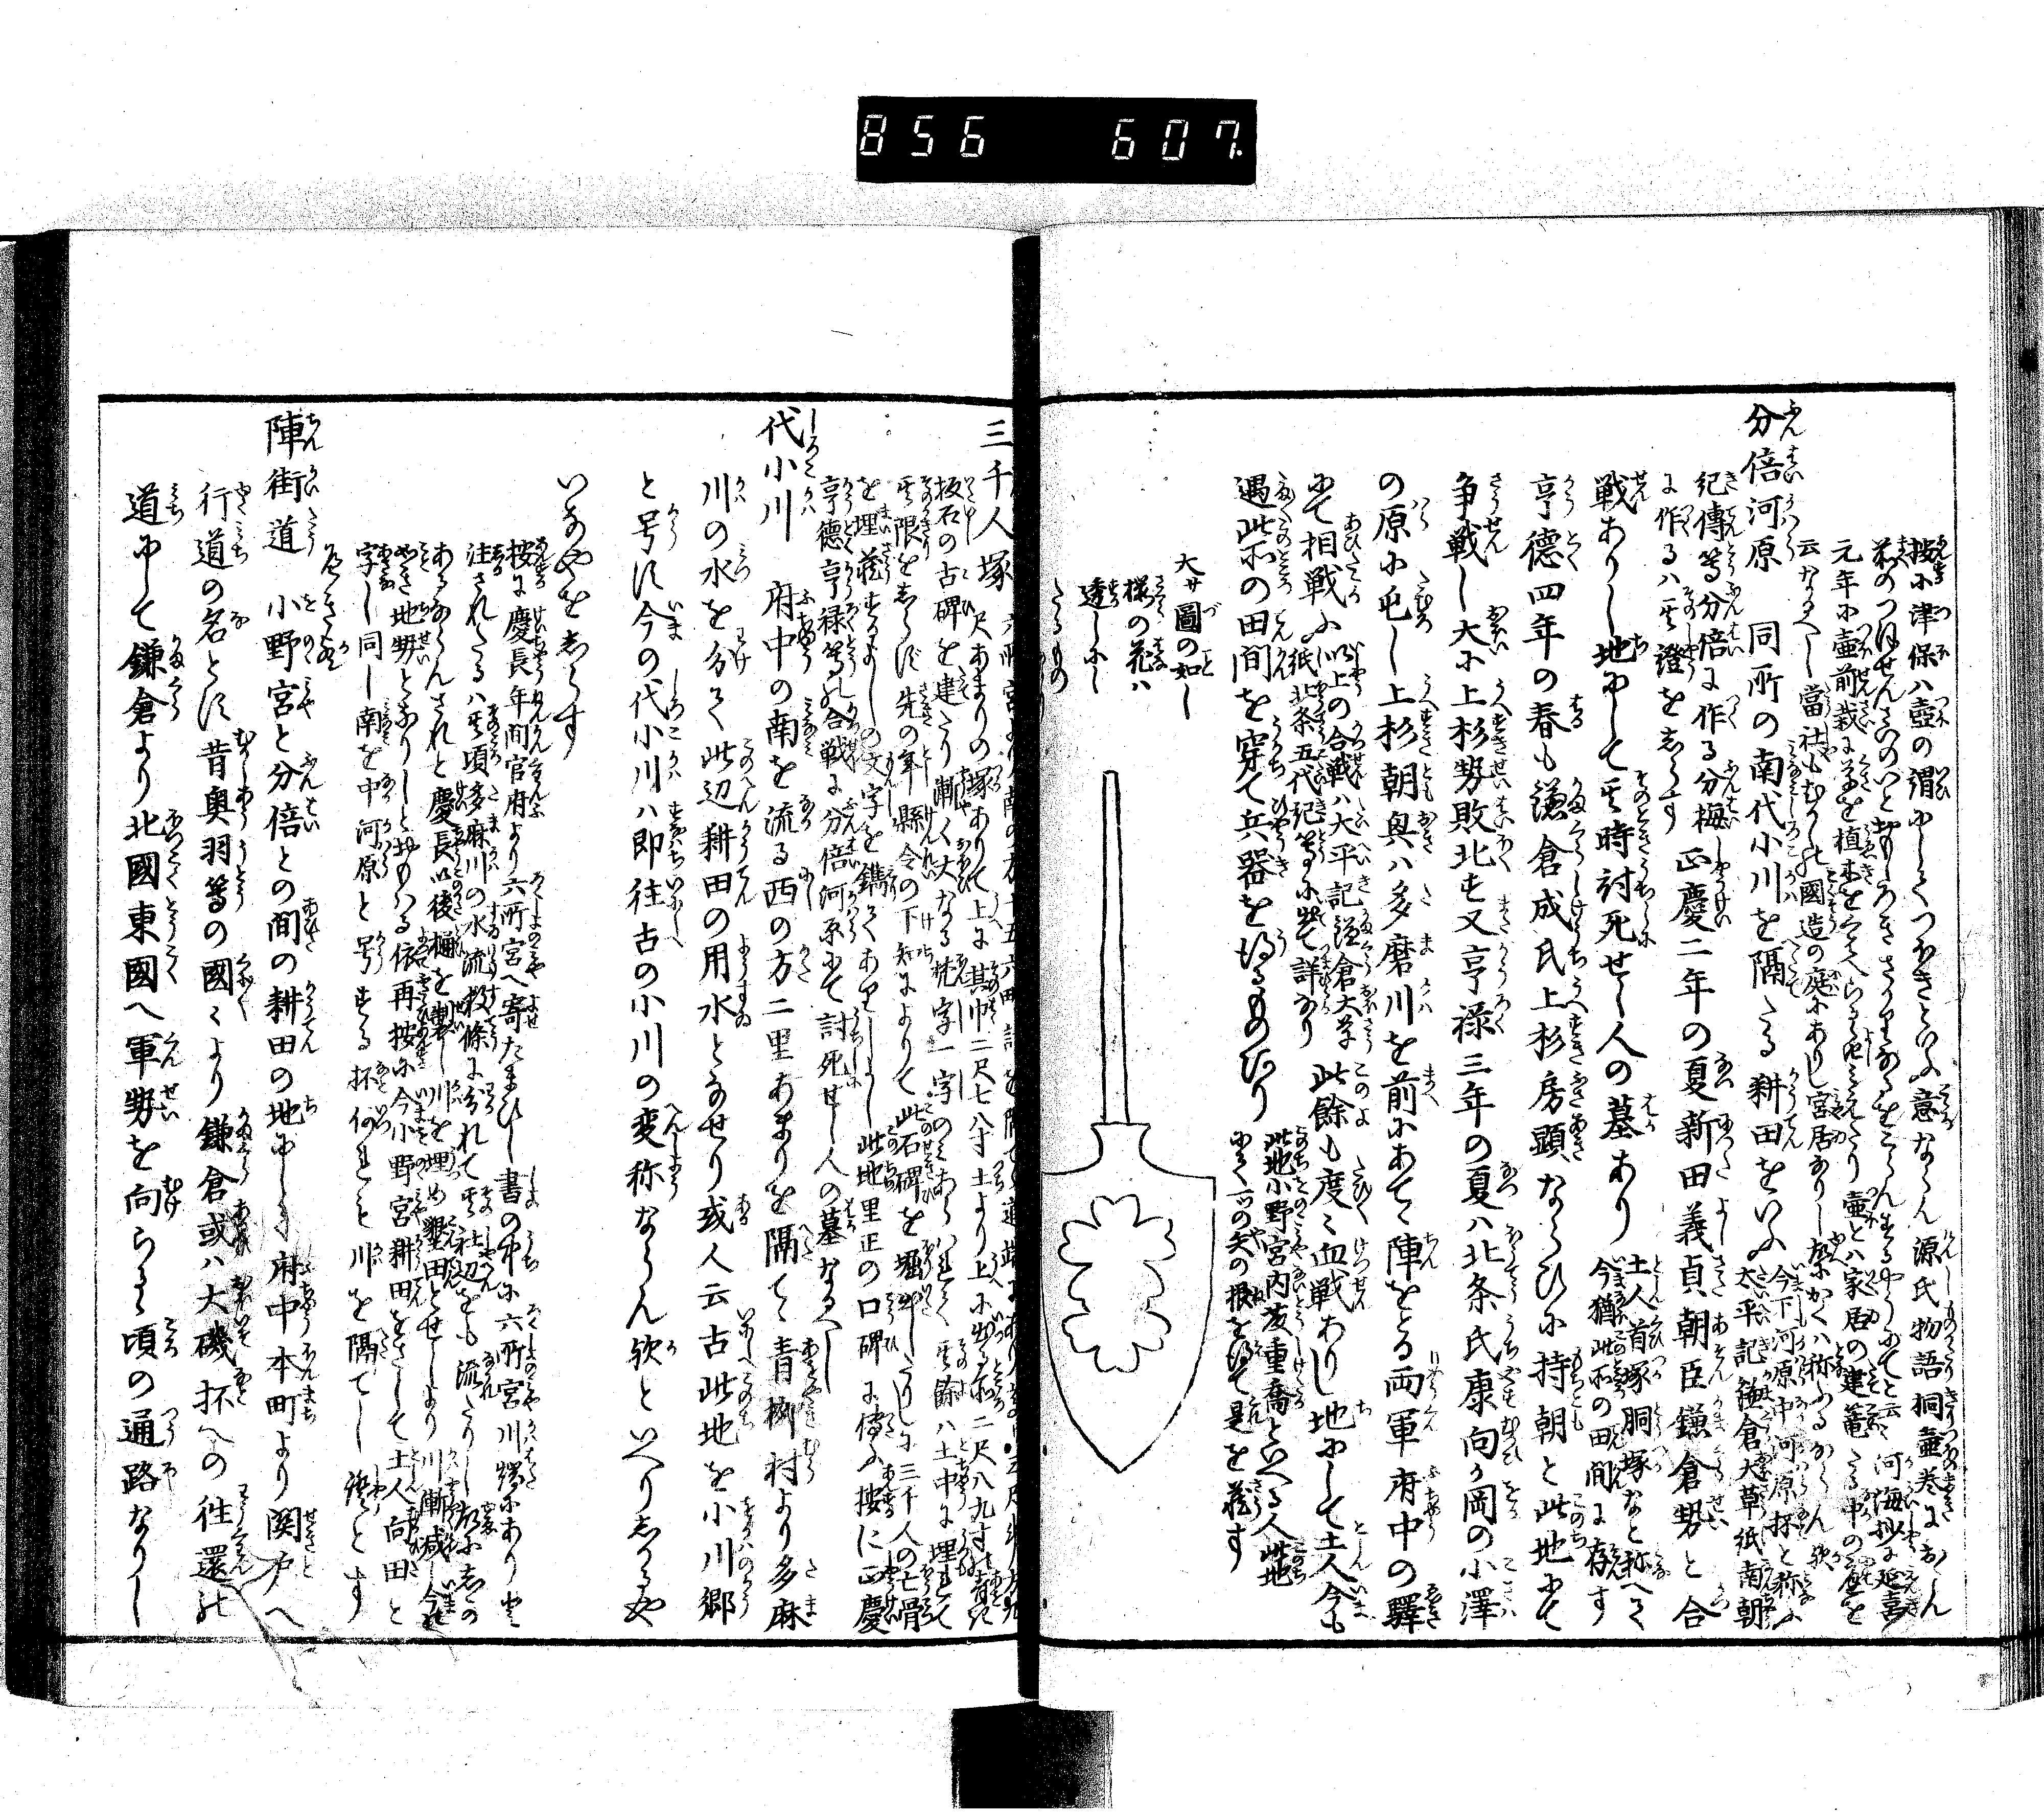 856 607
按小津保ハ壺の謂にしてつほきといふ意ならん源氏物語桐壺巻におまへ
の
元年に壺前栽に草を植
云なるへし當社もむかし國造の庭にありし宮居
分倍河原 同所の南代小川を隔たる耕田をいふ 今下河原中河原抔と称ふ太平記鎌倉大草紙南朝
紀傳等分倍に作る分梅
に作るハ其證をしらす
正慶二年の夏新田義貞朝臣鎌倉勢と合
戦ありし地にして其時討死せし人の墓あり 土人首塚胴塚なと称へて今猶此所の田間に存す
亨徳四年の春も鎌倉成氏上杉房顕ならひに持朝と此地にて
争戦し大に上杉勢敗北す又亨禄三年の夏ハ北条氏康向か岡の小澤
の原に屯し上杉朝興ハ多磨川を前にあてゝ陣をとる両軍府中の驛
にて相戦ふ 以上の合戦ハ太平記鎌倉大草紙北条五代記等に出て詳なり 此餘も度々血戦ありし地にして土人今も
遇此所の田間を穿て兵器を得るものあり 此地小野宮内藤重喬といへる人此地にて一つの矢の根を得て是を蔵す
大サ圖の如し
桜の花ハ
透しにし
たるもの
三千人塚
尺あまりの塚ありて上に其巾二尺七八寸土より上に出る所二尺八九寸
板石の古碑を建たり漸く大なる梵字一字のみあらはれて其餘ハ土中に埋れて
其限をしらす先の年縣令の下知によりて此石碑を堀出したりしに三千人の亡骨
を埋蔵するよしの文字を鐫てありしよし此地里正の口碑に傳ふ按に正慶
亨徳亨禄等の合戦に分倍河原にて討死せし人の墓なるへし
代小川 府中の南を流る西の方二里あまりを隔てゝ青柳村より多麻
川の水を分て此辺耕田の用水となせり或人云古此地を小川郷
と号す今の代小川ハ即往古の小川の変称ならん欤といへりしかるや
いなやをしらす
按に慶長年間官府より六所宮へ寄たまひし書の中に六所宮川端にありと
注されたるハ其頃多麻川の水流数條に分れて其社辺をも流たりし故にしか
あるならんされと慶長以後樋を製し川を埋め墾田とせしより川漸減し今の
如き地勢となりしとおもハる依再按に今小野宮耕田をさして土人向田と
字し同し南を中河原と号する抔何れも川を隔てし證とす
へきにや
陣街道 小野宮と分倍との間の耕田の地にして府中本町より関戸へ
行道の名とす昔奥羽等の國々より鎌倉或ハ大磯抔への往還の
道にして鎌倉より北國東國へ軍勢を向らるゝ頃の通路なりし